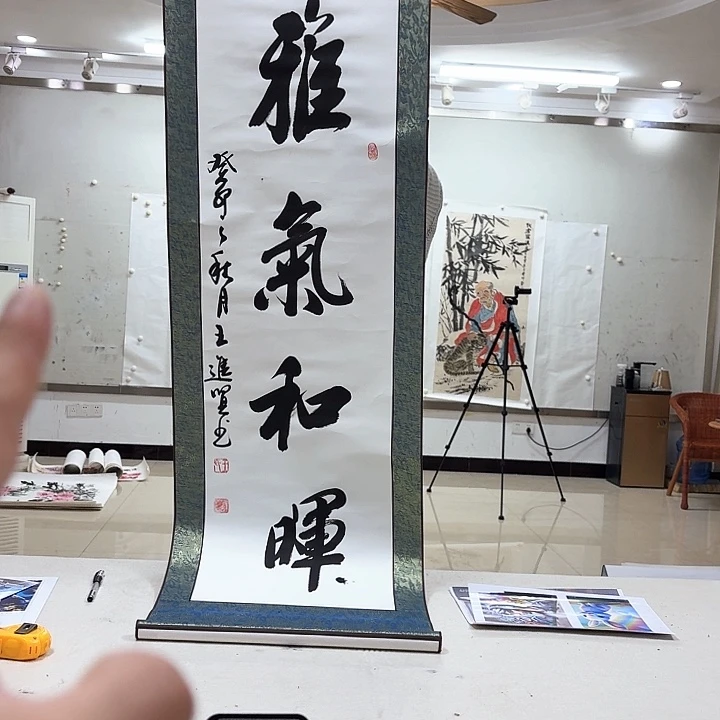 雅氣和暉
癸卯之秋月王進賢書